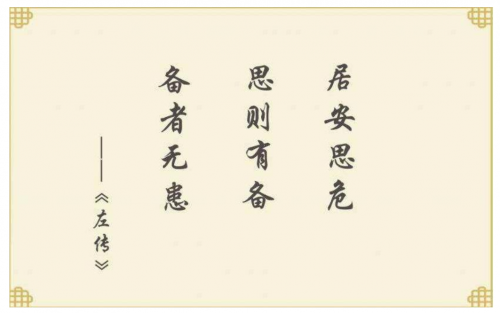 居安思危
思则有备
备者无患
——《左传》